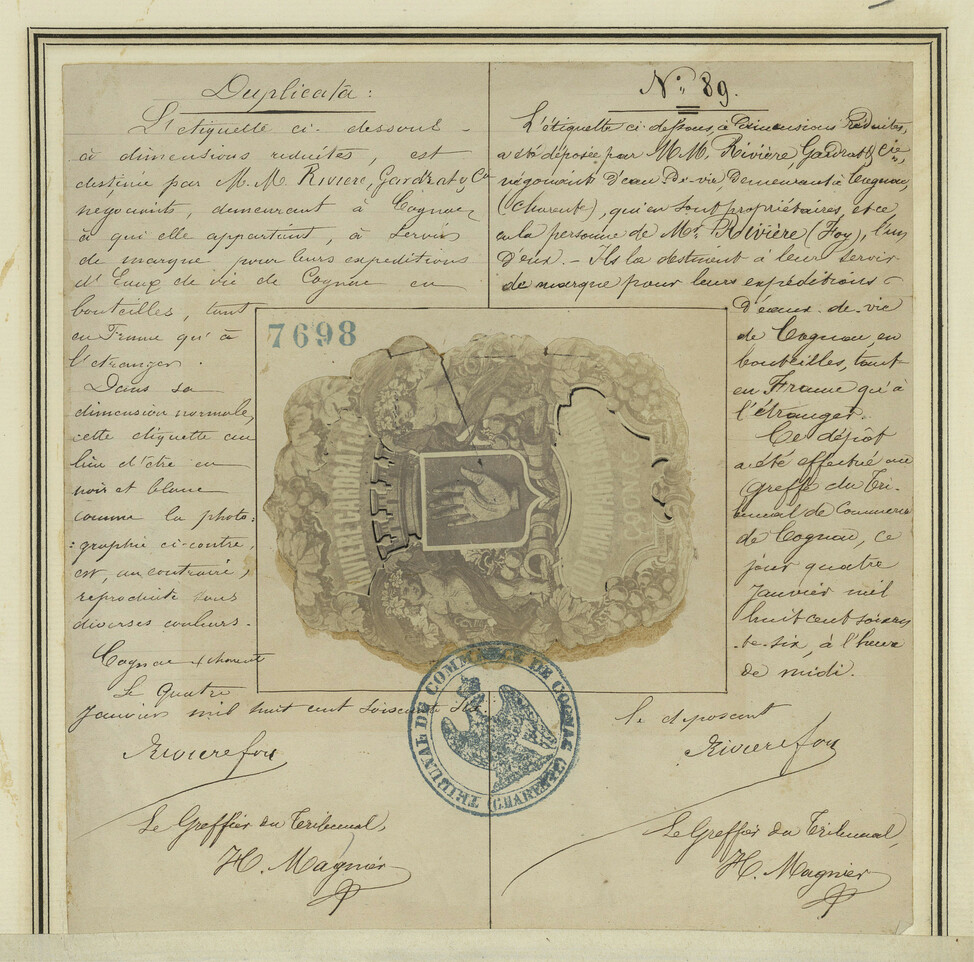 Duplicata :
L'étiquette ci-dessous -
à dimensions reduites, est
destinée par M. M. Riviere, Gardrat & Co
negociants, demeurant à Cognac
à qui elle appartient, à servir
de marque pour leurs expeditions
d'Eaux de vie de Cognac en
bouteilles, tant
en France qu'à
l'étranger.
Dans sa
dimension normale,
cette étiquette au
lieu d'être en
noir et blanc
comme la photo-
graphie ci-contre,
est, au contraire,
reproduite sous
diverses couleurs.
Cognac
Le quatre
Janvier mil huit cent soixante six
Riviere foy
Le Greffier du Tribunal,
H. Magnier
N° 89.
L'étiquette ci-dessous, à Dimensions Réduites,
a été déposée par M.M. Rivière, Gardrat & Cie,
négociants d'eau-de-vie, Demeurant à Cognac,
(Charente), qui en sont propriétaires, et ce
en la personne de Mr. Rivière (Foy), l'un
D'eux. - Ils la destinent à leur servir
de marque pour leurs expéditions
D'eaux-de-vie
de Cognac en
bouteilles, tant
en France qu'à
l'étranger.
Ce dépôt
a été effectué au
Greffe du Tri-
bunal de Commerce
de Cognac, ce
jour quatre
Janvier mil
huit cent soixan-
te-six, à l'heure
de midi.
le deposant
Riviere foy
Le Greffier du Tribunal,
H. Magnier
7698
RIVIERE GARDRAT & Cie
COGNAC
TRIBUNAL DE COMMERCE DE COGNAC (CHARENTE)